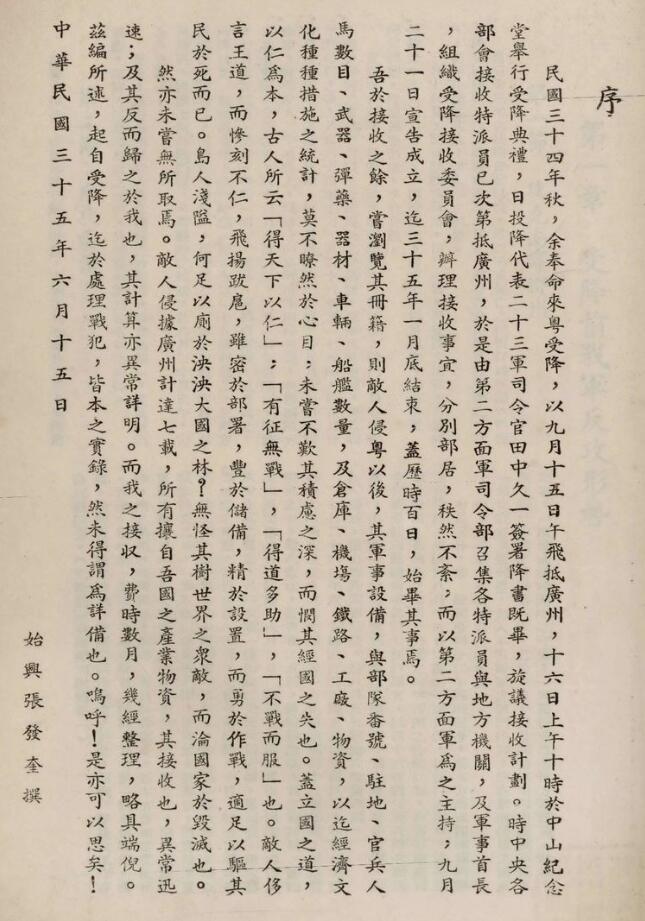 序
民國三十四年秋，余奉命來粤受降，以九月十五日午飛抵廣州，十六日上午十時於中山紀念
堂舉行受降典禮，日投降代表二十三軍司令官田中久一簽署降書既畢，旋議接收計劃。時中央各
部會接收特派員已次第抵廣州，於是由第二方面軍司令部召集各特派員與地方機關，及軍事首長
，組織受降接收委員會，辦理接收事宜，分別部居，秩然不紊；而以第二方面軍爲之主持；九月
二十一日宣告成立，迄三十五年一月底結束；蓋歷時百日，始畢其事焉。
吾於接收之餘，嘗瀏覽其冊籍，則敵人侵粤以後，其軍事設備，與部隊番號、駐地、官兵人
馬數目、武器、彈藥、器材、車輛、船艦數量，及倉庫、機塲、鐵路、工廠、物資，以迄經濟文
化種種措施之統計，莫不瞭然於心目；未嘗不歎其積慮之深，而憫其經國之失也。蓋立國之道，
以仁爲本，古人所云「得天下以仁」；「有征無戰」，「得道多助」，「不戰而服」也。敵人侈
言王道，而慘刻不仁，飛揚跋扈，雖密於部署，豐於儲備，精於設置，而勇於作戰，適足以驅其
民於死而已。島人淺隘，何足以廁於泱泱大國之林？無怪其樹世界之衆敵，而淪國家於毀滅也。
然亦未嘗無所取焉。敵人侵據廣州計達七載，所有攘自吾國之產業物資，其接收也，異常迅
速；及其反而歸之於我也，其計算亦異常詳明。而我之接収，費時數月，幾經整理，略具端倪。
茲編所述，起自受降，迄於處理戰犯，皆本之實錄，然未得謂爲詳備也。嗚呼！是亦可以思矣！
中華民國三十五年六月十五日
始興張發奎撰